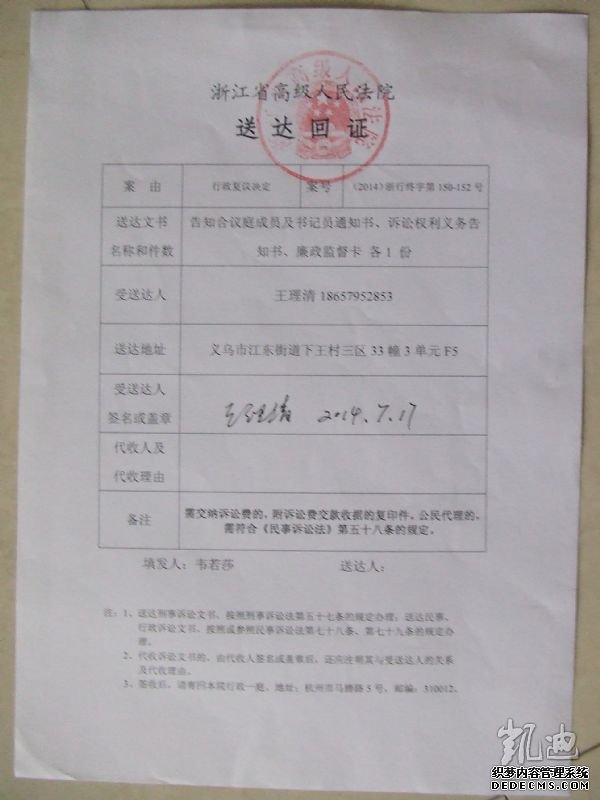 浙江省高级人民法院
送达回证
案由 行政复议决定 案号 (2014)浙行终字第150-152号
送达文书 告知合议庭成员及书记员通知书、诉讼权利义务告
名称和件数 知书、廉政监督卡 各1份
受送达人 王理清 18657952853
送达地址 义乌市江东街道下王村三区33幢3单元F5
受送达人
签名或盖章 王理清 2014.7.17
代收人及
代收理由
备注 需交纳诉讼费的,附诉讼费交款收据的复印件。公民代理的,
需符合《民事诉讼法》第五十八条的规定。
填发人:韦若莎 送达人:
注:1、送达刑事诉讼文书,按照刑事诉讼法第五十七条的规定办理;送达民事、
行政诉讼文书,按照或参照民事诉讼法第七十八条、第七十九条的规定办
理。
2、代收诉讼文书的,由代收人签名或盖章后,还应注明其与受送达人的关系
及代收理由。
3、签收后,请寄回本院行政一庭,地址:杭州市马塍路5号,邮编:310012。
凯迪
织梦内容管理系统
DEDECMS.COM